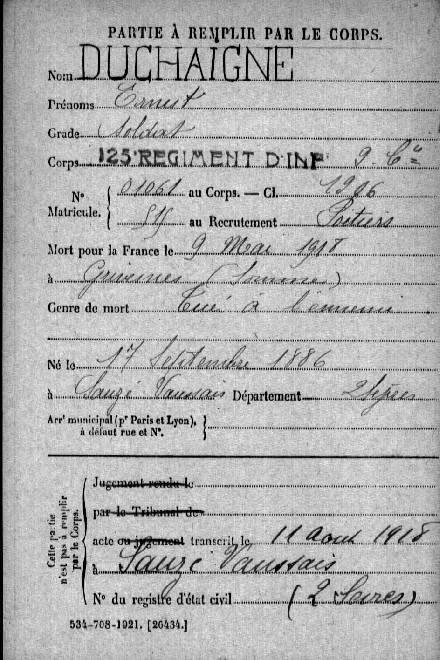 PARTIE À REMPLIR PAR LE CORPS.
Nom DUCHAIGNE
Prénoms Ernest
Grade Soldat
Corps 125e REGIMENT D'INF 9 Cie
N° Matricule. { 01061 au Corps. — Cl. 1906
au Recrutement Poitiers
Mort pour la France le 9 Mai 1918
à Grivesnes (Somme)
Genre de mort Tué à l'ennemi
Né le 17 Septembre 1886
à Sauzé Vaussais Département 2 Sèvres
Arr' municipal (pr Paris et Lyon), à défaut rue et N°. }
Cette partie n'est pas à remplir par le Corps.
Jugement rendu le
par le Tribunal de
acte ou jugement transcrit le 11 Août 1918
à Sauzé Vaussais
N° du registre d'état civil (2 Sèvres)
534-708-1921. [26434.]